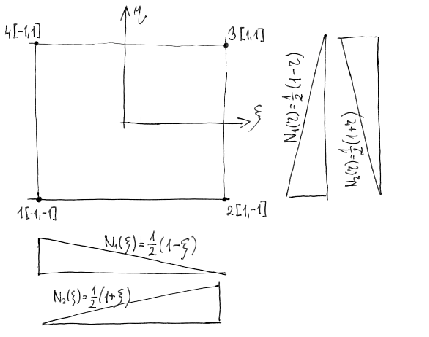 η
4[-1,1]
3[1,1]
ξ
1[-1,-1]
2[1,-1]
N₁(η)=½(1-η)
N₂(η)=½(1+η)
N₁(ξ)=½(1-ξ)
N₂(ξ)=½(1+ξ)